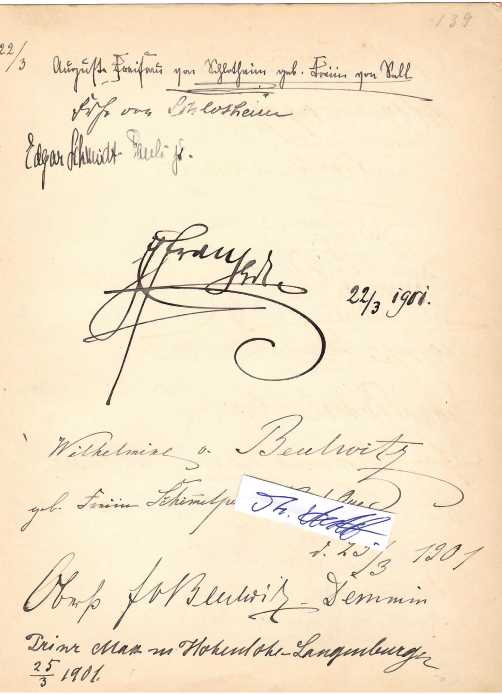 139
22/3
Auguste Freifrau von Schlotheim geb. Freiin von Sell
von Schlotheim
Edgar Schmidt-Pauli jr.
Franz
22/3 1901.
Wilhelmine v. Beulwitz
geb. Freiin Schimmelpe
d. 25/3 1901
Oberst f v Beulwitz - Demmin
Prinz Max zu Hohenlohe-Langenburg
25/3 1901.